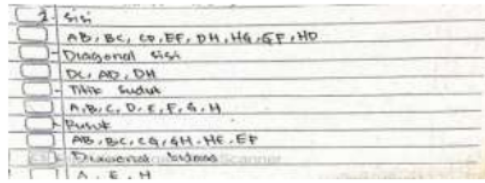 2. Sisi
AB, BC, CD, EF, DH, HG, GF, HD
- Diagonal sisi
DC, AD, DH
- Titik Sudut
A, B, C, D, E, F, G, H
- Rusuk
AB, BC, CG, GH, HE, EF
Diagonal
A, E, H